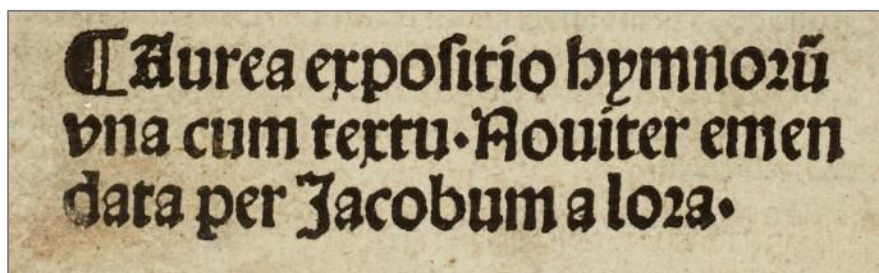 ¶ Aurea expoſitio hymnoꝛū
vna cum textu. Nouiter emen
data per Jacobum a loꝛa.